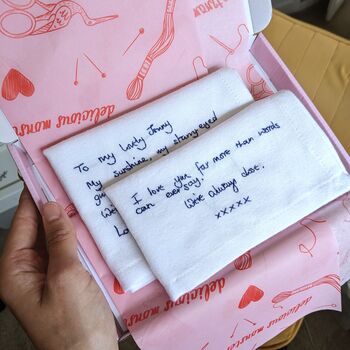 delicious monster
To my Lovely Jenny
My sunshine, my starry eyed
We
Lo
I love you far more than words
can ever say.
We're always close.
xxxxx
delicious monster
delicious monster